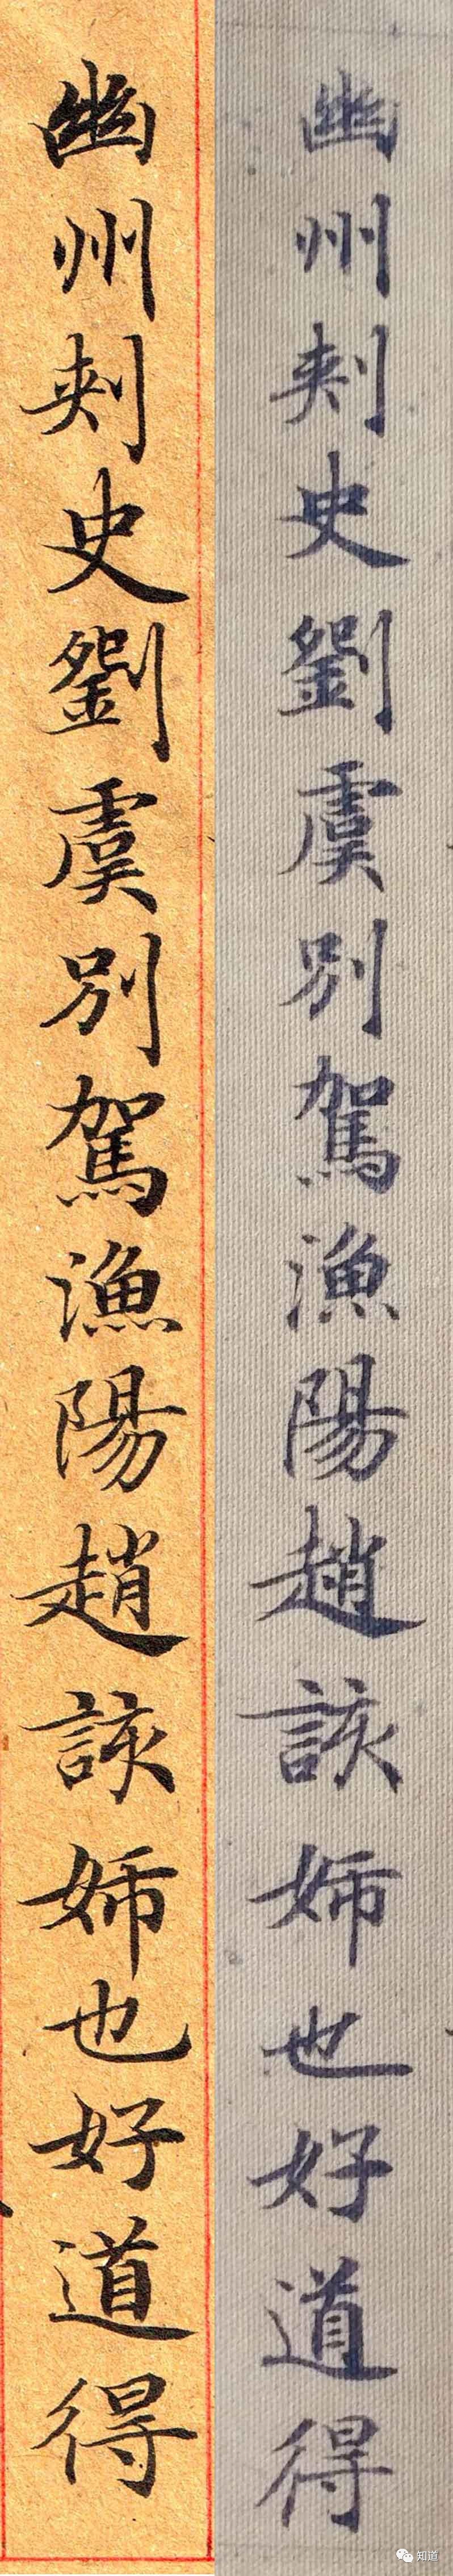 幽州刺史劉虞別駕漁陽趙該姊也好道得
幽州刺史劉虞別駕漁陽趙該姊也好道得
知道